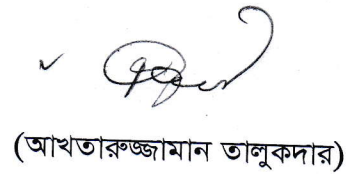 (আখতারুজ্জামান তালুকদার)